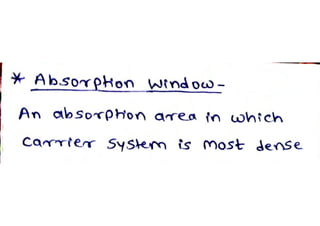 * Absorption Window -
An absorption area in which
carrier system is most dense